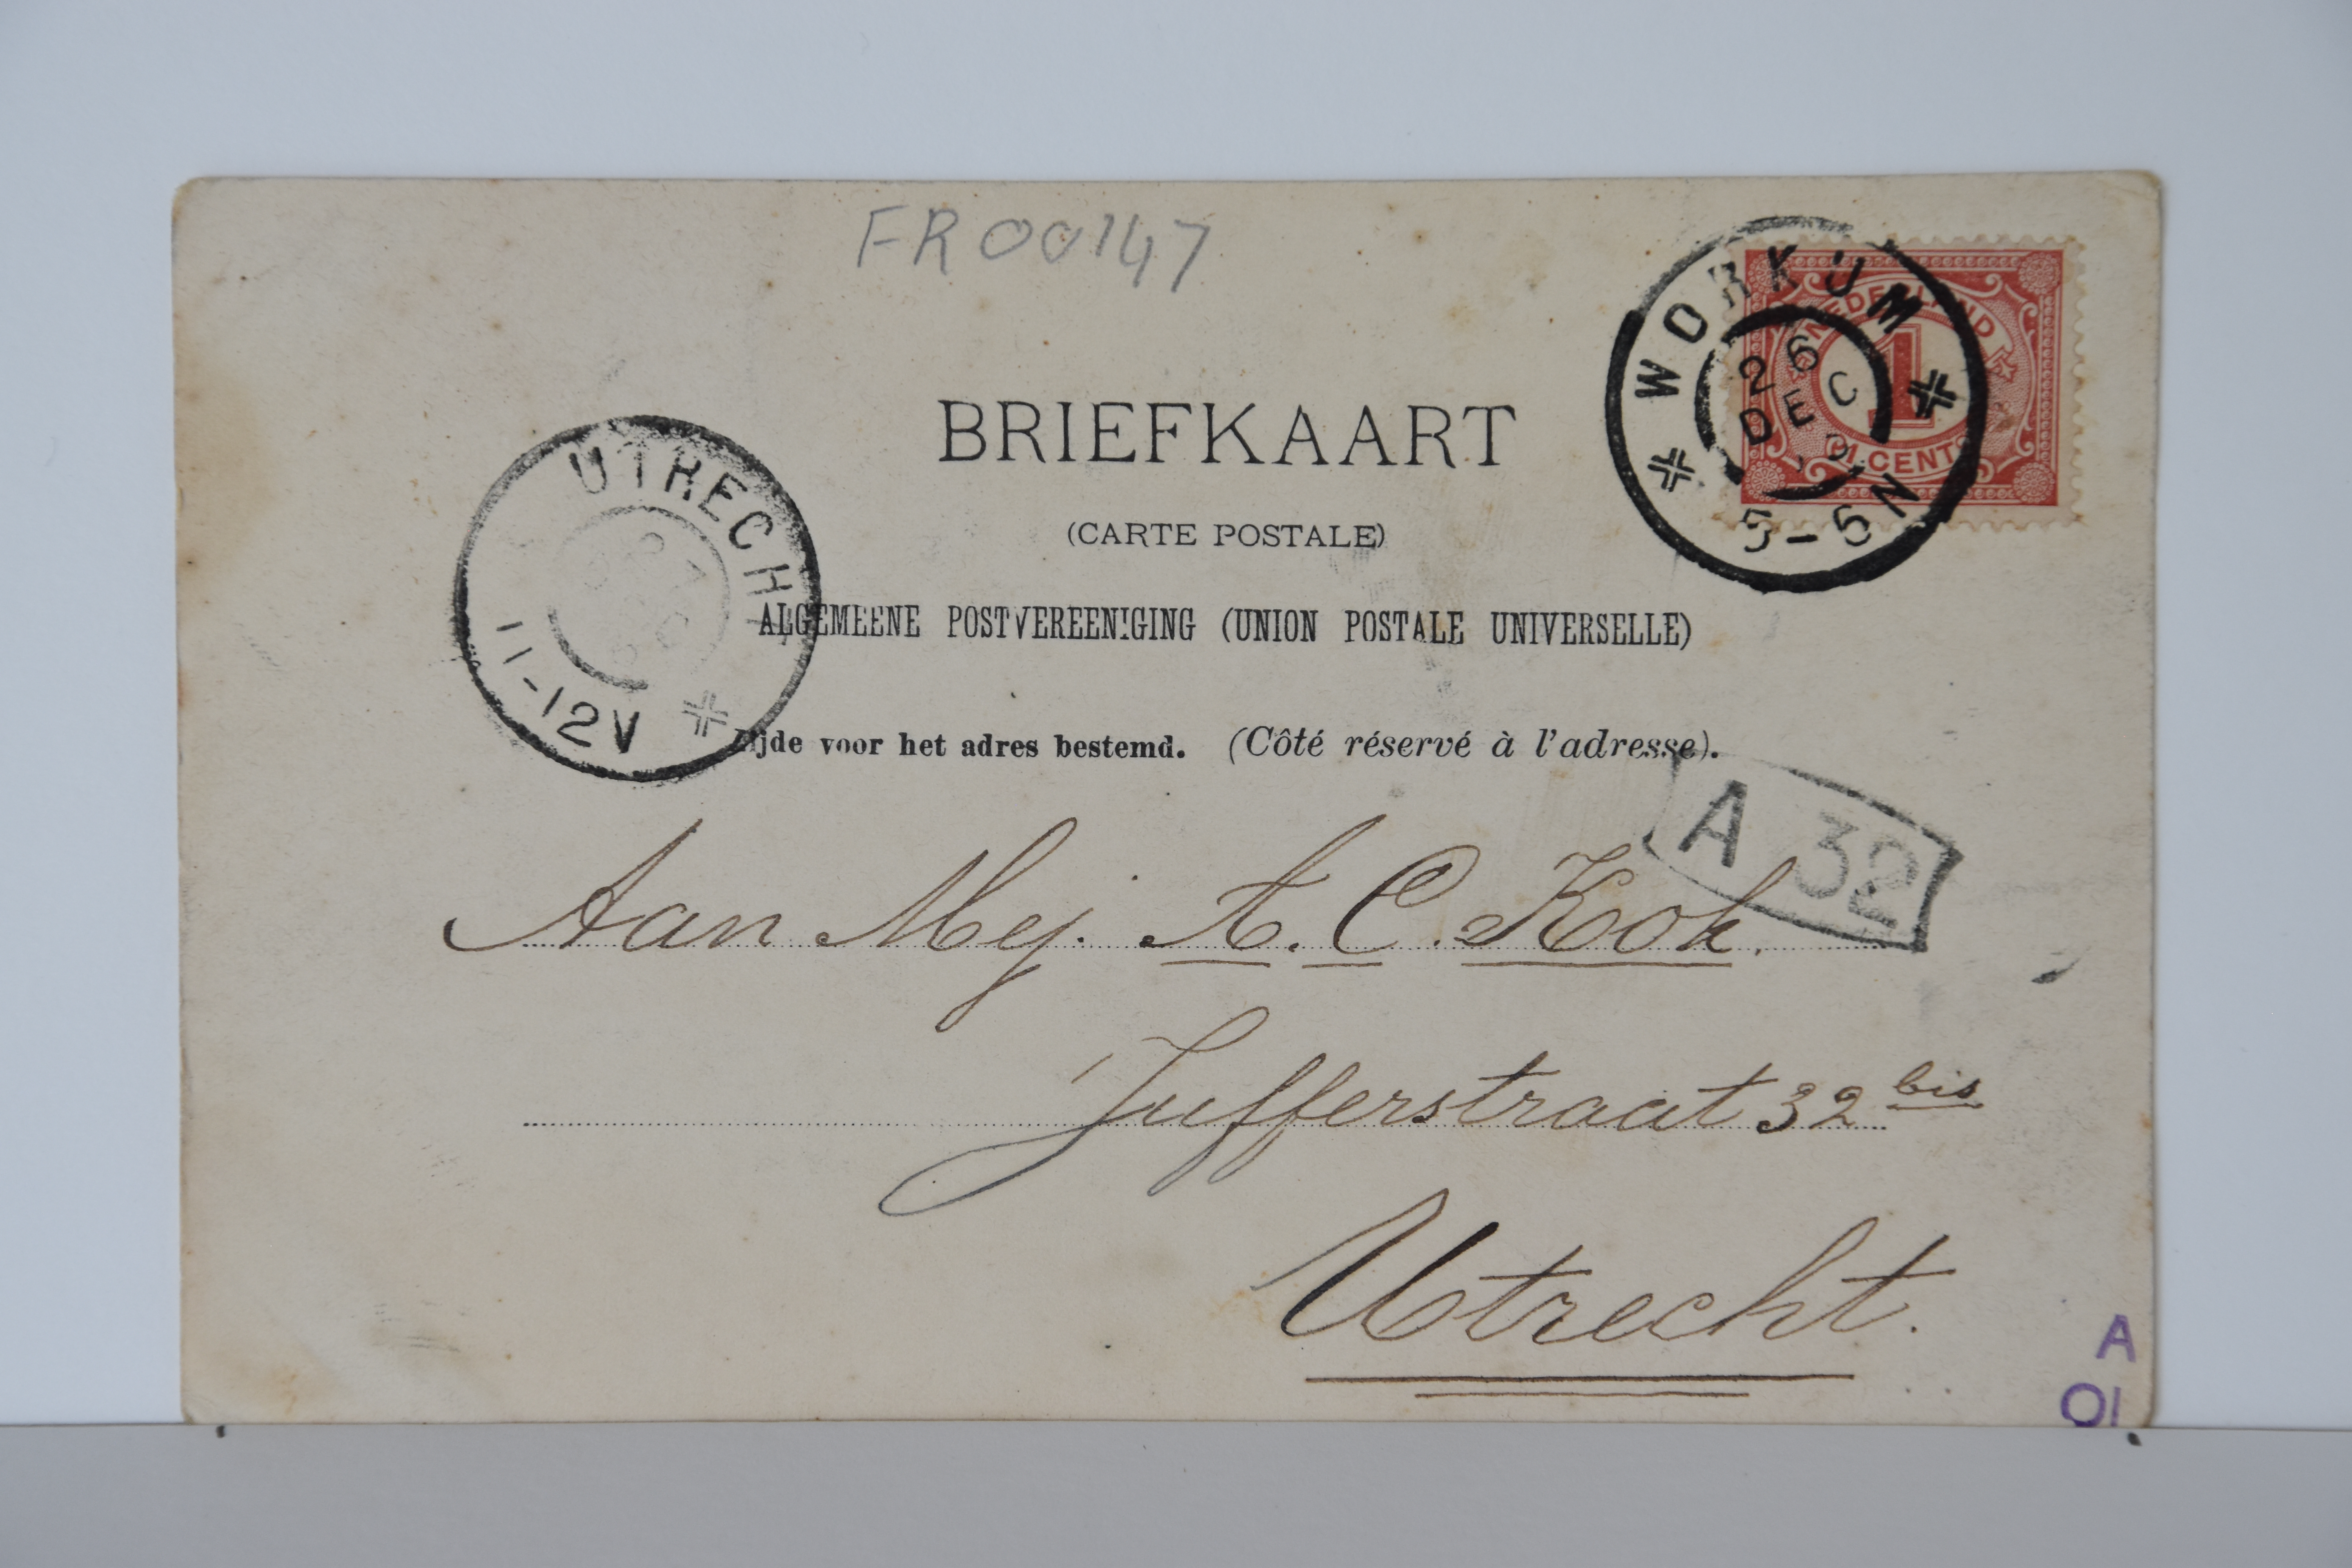 FR00147
WORKUM
26
DEC
5-6N
NEDERLAND
1
1 CENT
BRIEFKAART
(CARTE POSTALE)
UTRECHT
11-12V
ALGEMEENE POSTVEREENIGING (UNION POSTALE UNIVERSELLE)
Zijde voor het adres bestemd. (Côté réservé à l'adresse).
A 32
Aan Mej. A. C. Kok.
Jufferstraat 32 bis
Utrecht.
A
01